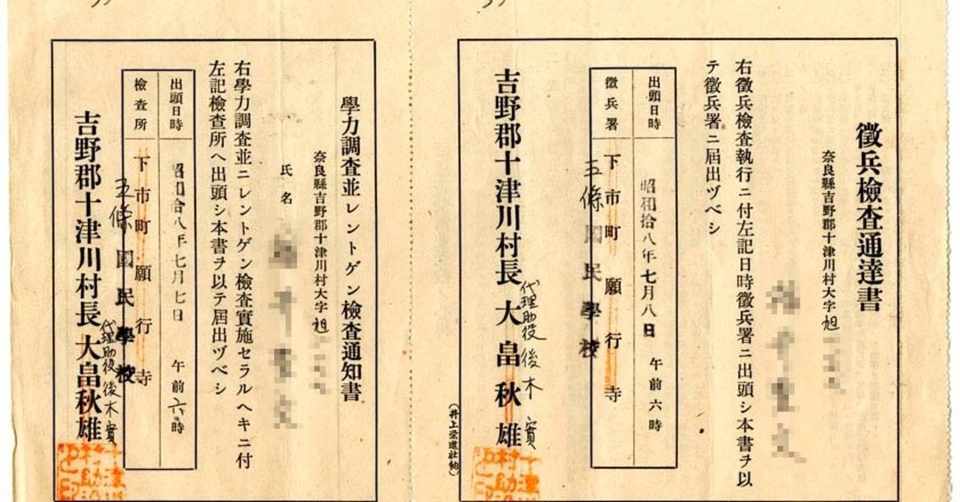 徵兵檢査通達書
奈良縣吉野郡十津川村大字旭
右徵兵檢査執行ニ付左記日時徵兵署ニ出頭シ本書ヲ以
テ徵兵署ニ屆出ヅベシ
出頭日時
昭和拾八年七月八日
午前六時
徵兵署
下市町願行寺
五條國民學校
吉野郡十津川村長 大畠秋雄
代理助役 後木 實
學力調査並レントゲン檢査通知書
奈良縣吉野郡十津川村大字旭
氏名
右學力調査並ニレントゲン檢査實施セラルヘキニ付
左記檢査所ヘ出頭シ本書ヲ以テ屆出ヅベシ
出頭日時
昭和拾八年七月七日
午前六時
檢査所
下市町願行寺
五條國民學校
吉野郡十津川村長 大畠秋雄
代理助役 後木 實